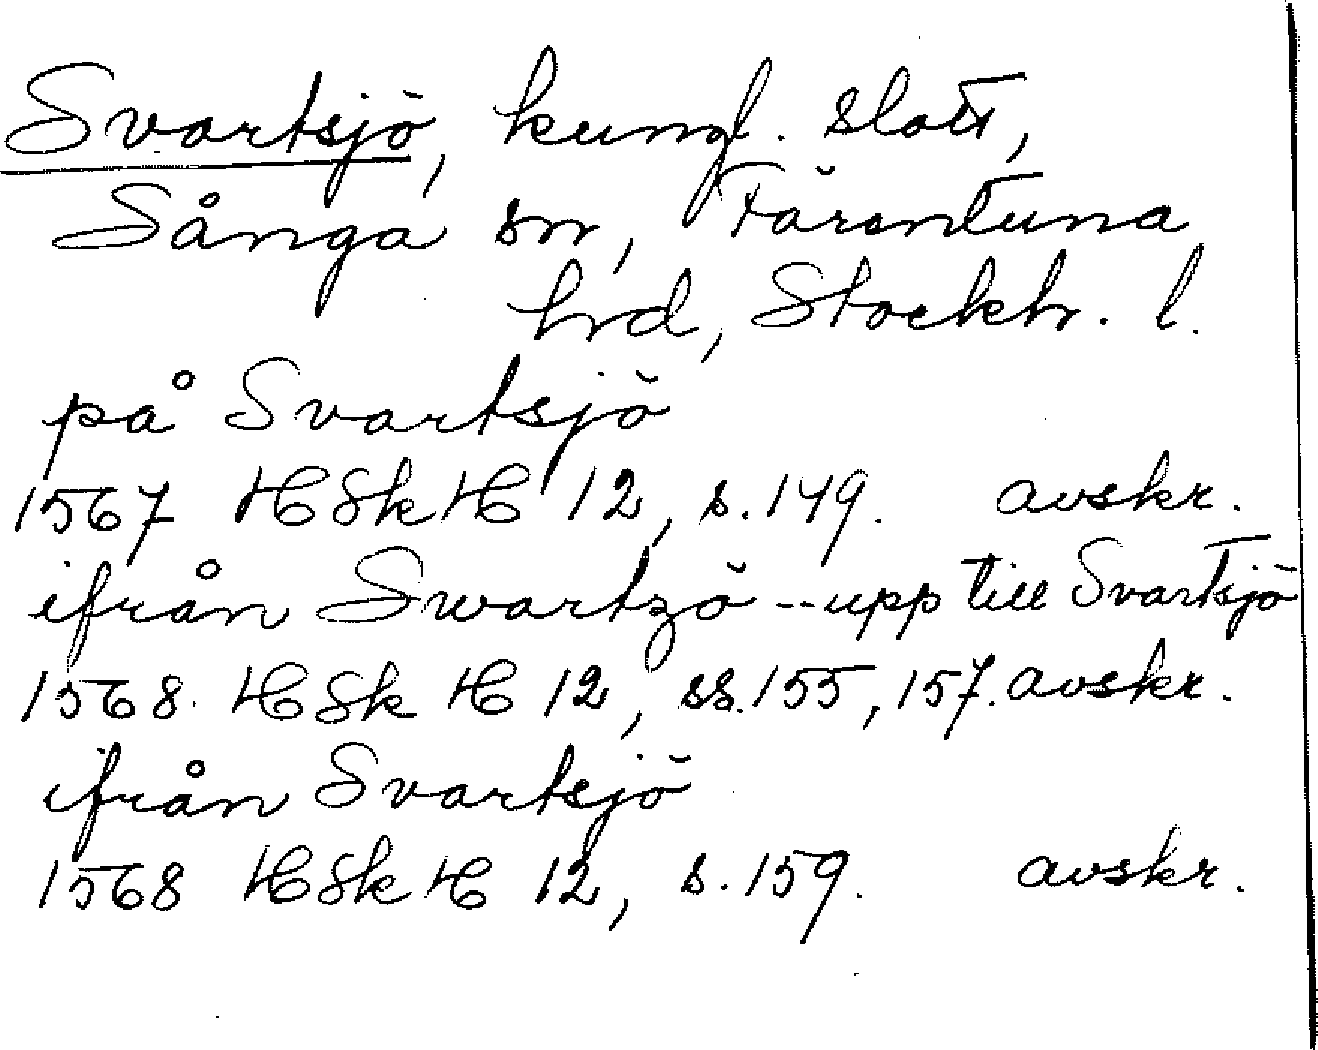 Svartsjö, kungl. slott,
Sånga sn, Färentuna
hrd, Stockh. l.
på Svartsjö
1567 HSkH 12, s. 149. avskr.
ifrån Swartzö -- upp till Svartsjö
1568. HSkH 12, ss. 155, 157. avskr.
ifrån Svartsjö
1568 HSkH 12, s. 159. avskr.